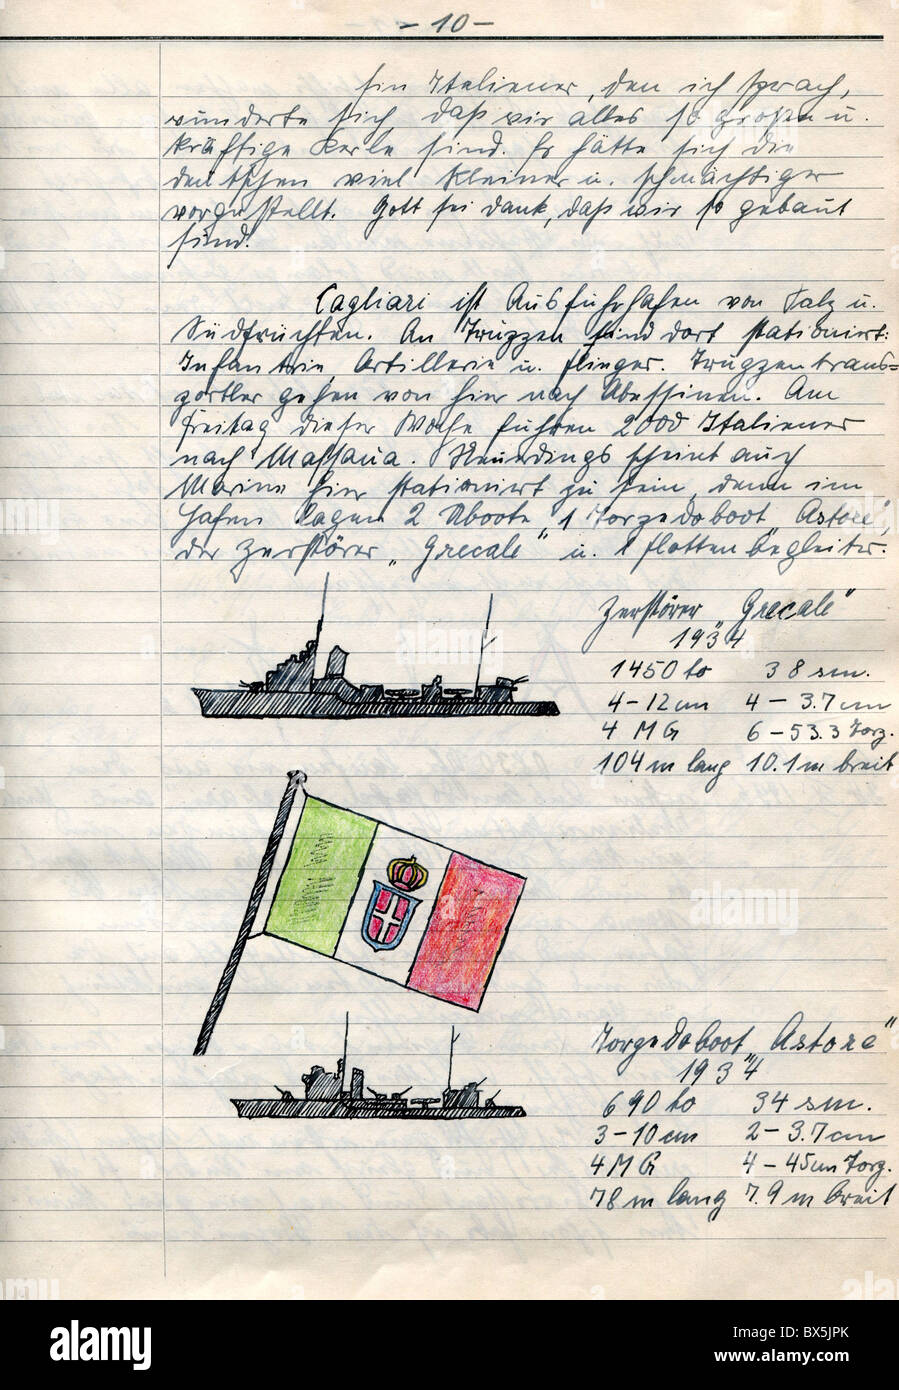 - 10 -
Ein Italiener, den ich sprach,
wunderte sich, daß wir alles so große u.
kräftige Kerle sind. Er hätte sich die
deutschen viel kleiner u. schmächtiger
vorgestellt. Gott sei dank, daß wir so gebaut
sind.
Cagliari ist Ausfuhrhafen von Salz u.
Südfrüchten. An Truppen sind dort stationiert:
Infantrie Artillerie u. Flieger. Truppentrans=
portler gehen von hier nach Abessinien. Am
Freitag dieser Woche fuhren 2000 Italiener
nach Massaua. Neuerdings scheint auch
Marine hier stationiert zu sein, denn im
Hafen lagen 2 Uboote, 1 Torpedoboot „Astore",
der Zerstörer „Grecale" u. 1 Flottenbegleiter.
Zerstörer „Grecale"
1934
1450 to 38 sm.
4-12 cm 4 - 3.7 cm
4 MG 6-53.3 Torp.
104 m lang 10.1 m breit
Torpedoboot „Astore"
1934
690 to 34 sm.
3-10 cm 2-3.7 cm
4 MG 4-45 cm Torp.
78 m lang 7.9 m breit
alamy
Image ID: BX5JPK
www.alamy.com